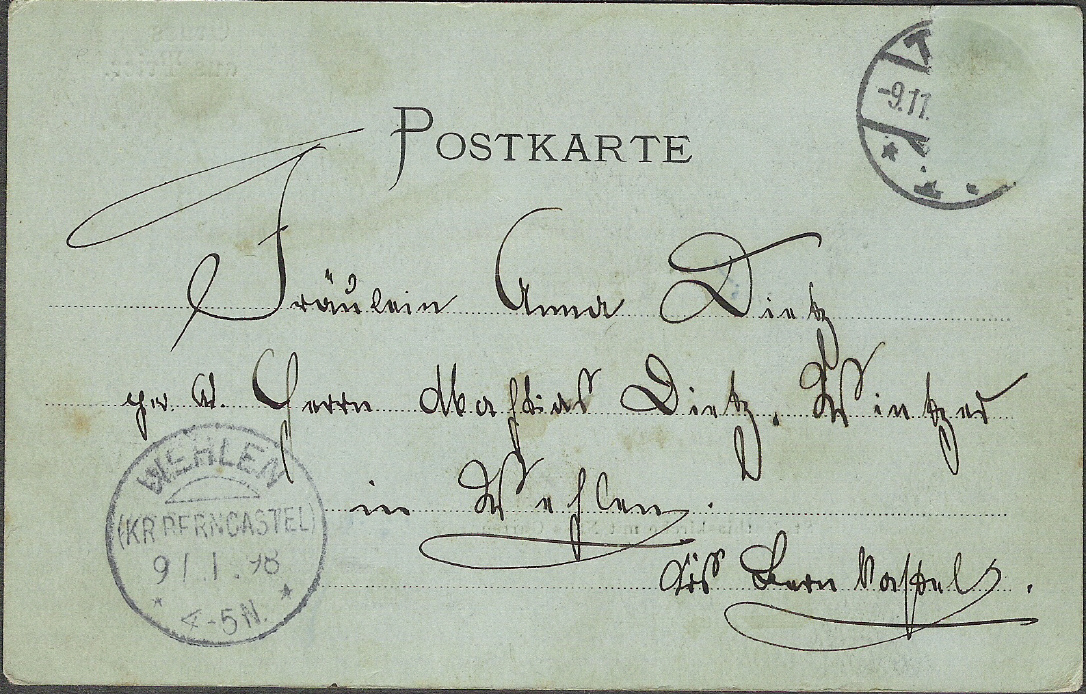 POSTKARTE
-9.11.
Fräulein Anna Dietz
pr. A. Herrn Mathias Dietz, Wintzer
in Wehlen.
Bernkastel.
WEHLEN
(KR. BERNCASTEL)
9/1.98
4-5N.